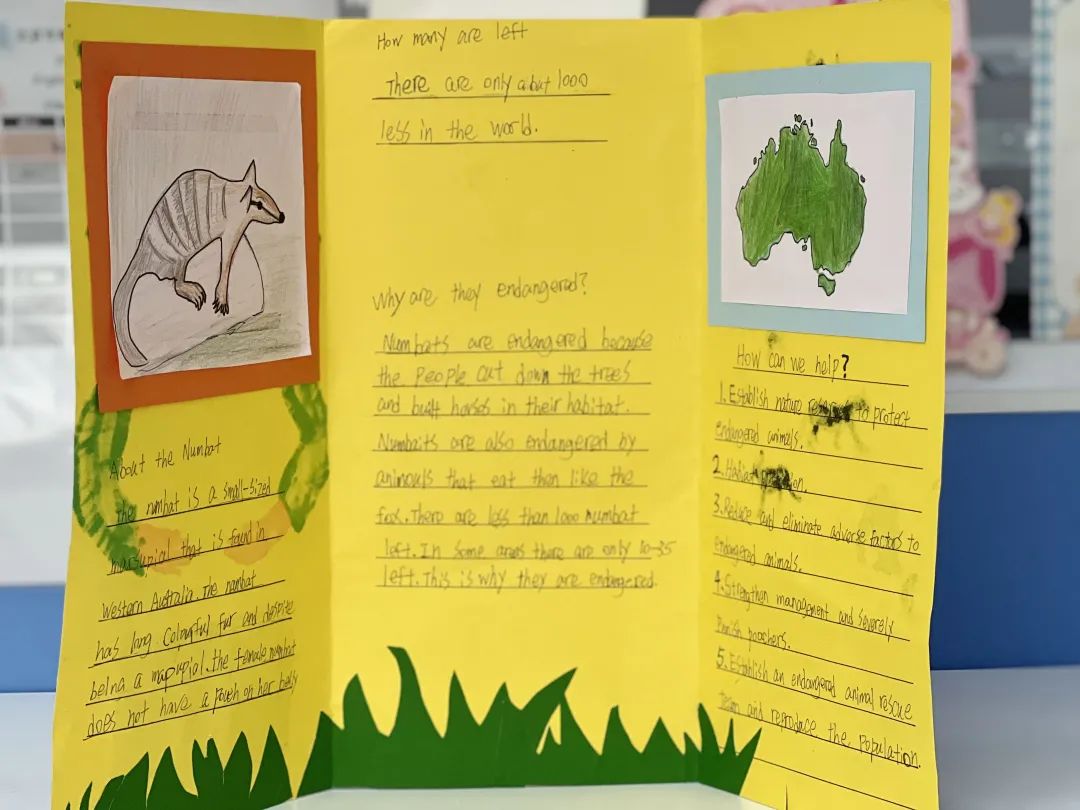 About the Numbat
The numbat is a small-sized
marsupial that is found in
Western Australia. The numbat
has long colourful fur and despite
being a mapupial. the female numbat
does not have a pouch on her belly
How many are left
There are only about 1000
less in the world.
Why are they endangered?
Numbats are endangered because
the People cut down the trees
and built horses in their habitat.
Numbaits are also endangered by
animouls that eat then like the
fox. There are less than 1000 numbat
left. In some areas there are only 10-35
left. This is why they are endengered.
How can we help?
1. Establish nature to protect
endangered animals.
2.
3. Reduce and eliminate adverse factors to
endangered animals.
4. Strengthen management and severely
Punish poachers.
5. Establish an endangered animal rescue
team and reproduce the population.